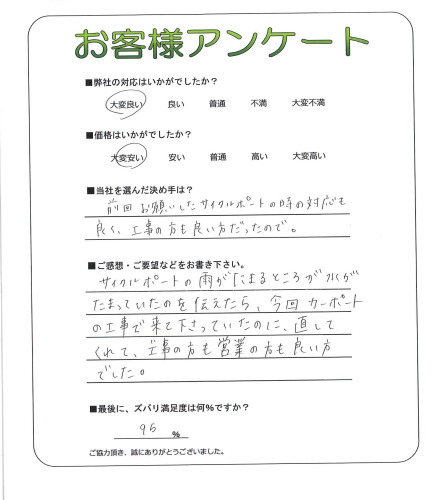 お客様アンケート
■弊社の対応はいかがでしたか？
大変良い 良い 普通 不満 大変不満
■価格はいかがでしたか？
大変安い 安い 普通 高い 大変高い
■当社を選んだ決め手は？
前回お願いしたサイクルポートの時の対応も
良く、工事の方も良い方だったので。
■ご感想・ご要望などをお書き下さい。
サイクルポートの雨がたまるところが水が
たまっていたのを伝えたら、今回カーポート
の工事で来て下さっていたのに、直して
くれて、工事の方も営業の方も良い方
でした。
■最後に、ズバリ満足度は何％ですか？
95 ％
ご協力頂き、誠にありがとうございました。